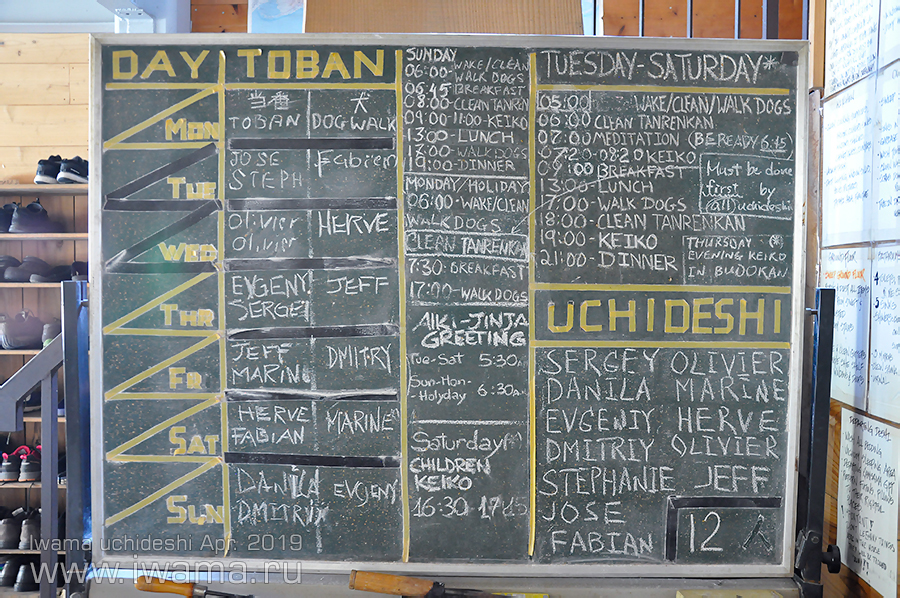 DAY TOBAN
当番 犬
MON TOBAN DOGWALK
TUE JOSE STEPH Fabien
WED Olivier Olivier HERVE
THR EVGENY SERGEI JEFF
FRI JEFF MARIN DMITRY
SAT HERVE FABIAN MARINE
SUN DANILA DMITRIY EVGENY
SUNDAY
06:00-WAKE/CLEAN
WALK DOGS
06.45 BREAKFAST
08:00-CLEAN TANREN
09:00-11:00-KEIKO
13:00-LUNCH
17:00-WALK DOGS
19:00-DINNER
MONDAY/HOLIDAY
06:00-WAKE/CLEAN
WALK DOGS
CLEAN TANRENKAN
7:30-BREAKFAST
17:00-WALK DOGS
AIKI-JINJA
GREETING
Tue-Sat 5:30am
Sun-Mon-
Holyday 6:30am
Saturday(*)
CHILDREN
KEIKO
16:30-17:15
TUESDAY-SATURDAY*
05:00 WAKE/CLEAN/WALK DOGS
06:00 CLEAN TANRENKAN
07:00 MEDITATION (BE READY 6.45)
07:20-08:20 KEIKO
09:00 BREAKFAST
13:00-LUNCH
17:00-WALK DOGS
18:00-CLEAN TANRENKAN
19:00-KEIKO
21:00-DINNER
Must be done
first by
(all) uchideshi
THURSDAY (*)
EVENING KEIKO
IN BUDOKAN
UCHIDESHI
SERGEY OLIVIER
DANILA MARINE
EVGENIY HERVE
DMITRIY OLIVIER
STEPHANIE JEFF
JOSE
FABIAN
12 人
Iwama uchideshi Apr. 2019
www.iwama.ru